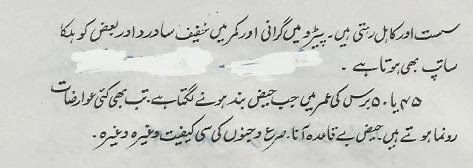 سست اور کاہل رہتی ہیں۔ پیڑو میں گرانی اور کمر میں خفیف سا درد اور بعض کو ہلکا
سا تپ بھی ہوتا ہے ۔
۴۵ یا ۵۰ برس کی عمر میں جب حیض بند ہونے لگتا ہے۔ تب بھی کئی عوارضات
رونما ہوتے ہیں۔ حیض بے قاعدہ آنا۔ صرع و جنوں کی سی کیفیت وغیرہ وغیرہ۔